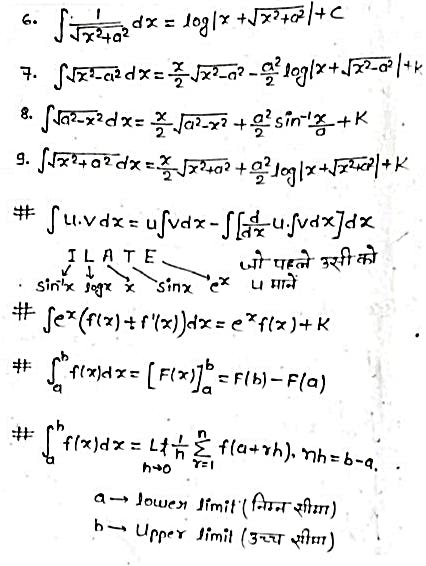 6. ∫ 1/√(x²+a²) dx = log|x + √(x²+a²)| + C
7. ∫√(x²-a²) dx = x/2 √(x²-a²) - a²/2 log|x+√(x²-a²)| + K
8. ∫√(a²-x²) dx = x/2 √(a²-x²) + a²/2 sin⁻¹ x/a + K
9. ∫√(x²+a²) dx = x/2 √(x²+a²) + a²/2 log|x+√(x²+a²)| + K
# ∫u.v dx = u∫v dx - ∫[d/dx u.∫v dx]dx
I L A T E जो पहले उसी को
sin⁻¹x logx x sinx eˣ u मानें
# ∫eˣ(f(x)+f'(x))dx = eˣ f(x) + K
# ∫ₐᵇ f(x)dx = [F(x)]ₐᵇ = F(b) - F(a)
# ∫ₐᵇ f(x)dx = Lt h→0 1/h Σ r=1 n f(a+rh), nh = b-a.
a → lower limit (निम्न सीमा)
b → Upper limit (उच्च सीमा)